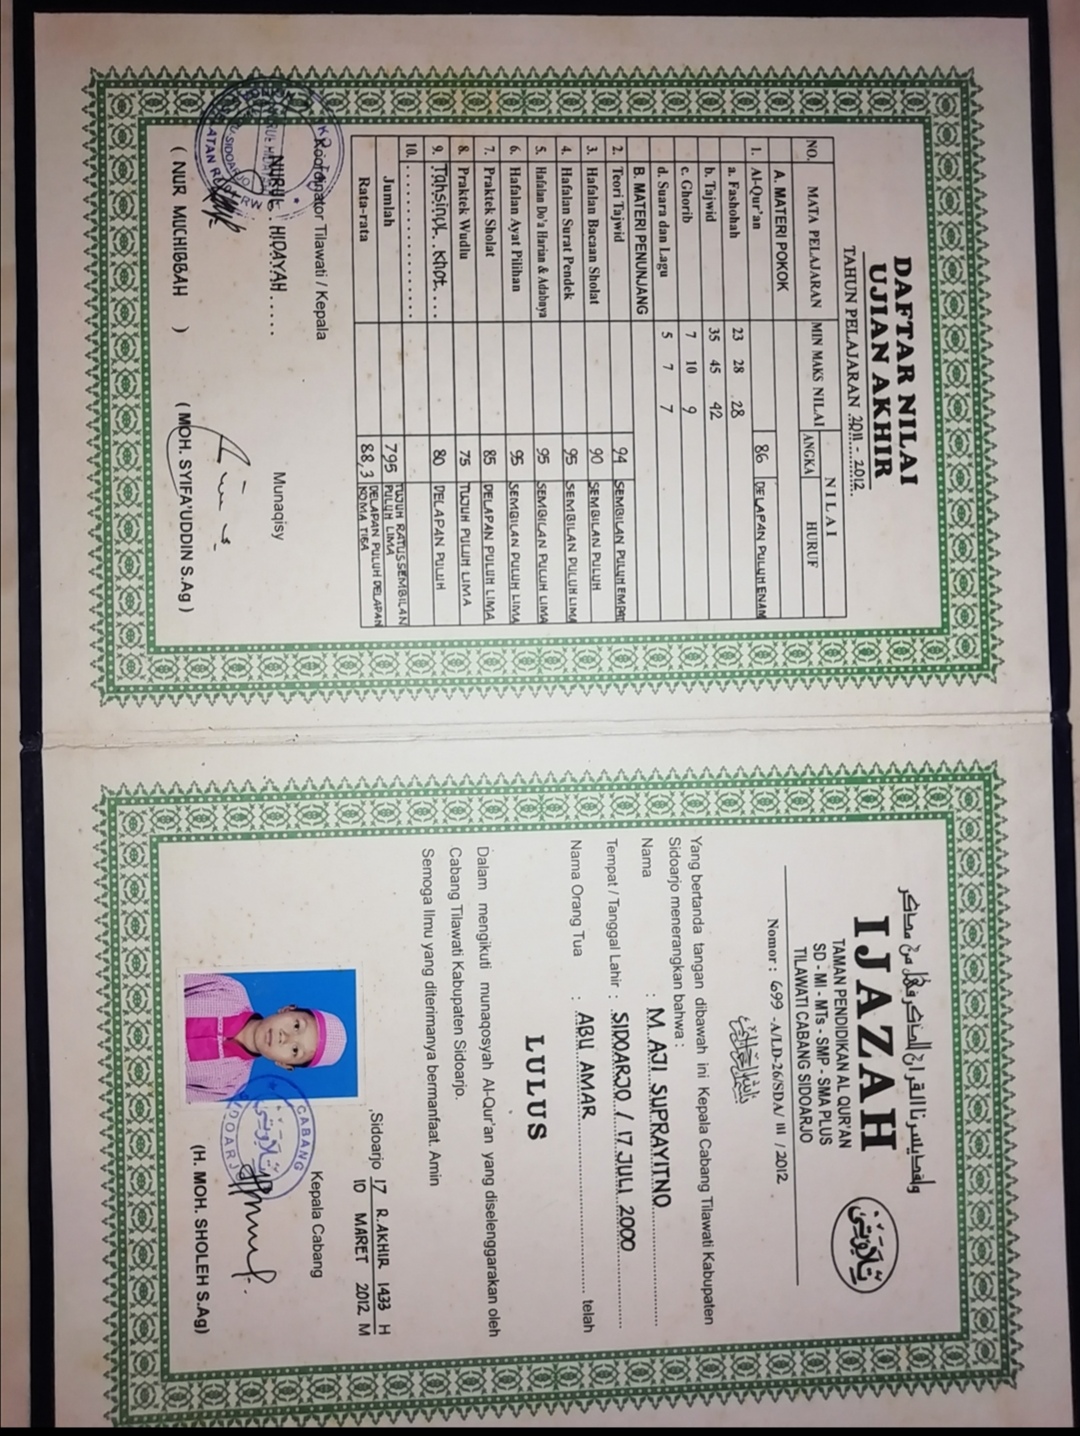 DAFTAR NILAI
UJIAN AKHIR
TAHUN PELAJARAN 2011 - 2012
NO. MATA PELAJARAN MIN MAKS NILAI NILAI
ANGKA HURUF
A. MATERI POKOK
1. Al-Qur'an 86 DELAPAN PULUH ENAM
a. Fashohah 23 28 28
b. Tajwid 35 45 42
c. Ghorib 7 10 9
d. Suara dan Lagu 5 7 7
B. MATERI PENUNJANG
2. Teori Tajwid 94 SEMBILAN PULUH EMPAT
3. Hafalan Bacaan Sholat 90 SEMBILAN PULUH
4. Hafalan Surat Pendek 95 SEMBILAN PULUH LIMA
5. Hafalan Do'a Harian & Adabnya 95 SEMBILAN PULUH LIMA
6. Hafalan Ayat Pilihan 95 SEMBILAN PULUH LIMA
7. Praktek Sholat 85 DELAPAN PULUH LIMA
8. Praktek Wudlu 75 TUJUH PULUH LIMA
9. Tahsinul Khot 80 DELAPAN PULUH
10.
Jumlah 795 TUJUH RATUS SEMBILAN PULUH LIMA
Rata-rata 88,3 DELAPAN PULUH DELAPAN KOMA TIGA
Koordinator Tilawati / Kepala
NURUL HIDAYAH
Munaqisy
( NUR MUCHIBBAH ) ( MOH. SYIFA'UDDIN S.Ag )
ولقد يسرنا القرآن للذكر فهل من مدكر
IJAZAH
TAMAN PENDIDIKAN AL QUR'AN
SD - MI - MTs - SMP - SMA PLUS
TILAWATI CABANG SIDOARJO
تيلاوتي
Nomor : 699 -A/LD-26/SDA/ III / 2012
بسم الله الرحمن الرحيم
Yang bertanda tangan dibawah ini Kepala Cabang Tilawati Kabupaten
Sidoarjo menerangkan bahwa :
Nama : M. AJI SUPRAYITNO
Tempat / Tanggal Lahir : SIDOARJO / 17 JULI 2000
Nama Orang Tua : ABU AMAR telah
LULUS
Dalam mengikuti munaqosyah Al-Qur'an yang diselenggarakan oleh
Cabang Tilawati Kabupaten Sidoarjo.
Semoga Ilmu yang diterimanya bermanfaat. Amin
Sidoarjo 17 R.AKHIR 1433 H
10 MARET 2012 M
Kepala Cabang
CABANG
SIDOARJO
(H. MOH. SHOLEH S.Ag)